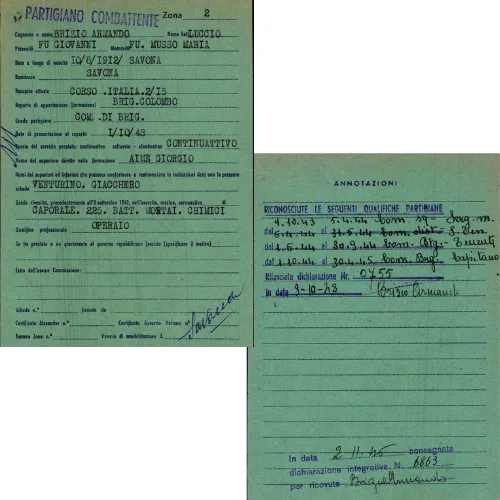 PARTIGIANO COMBATTENTE Zona 2
Cognome e nome BRIZIO ARMANDO Nome batt. LUCCIO
Paternità FU GIOVANNI Maternità FU. MUSSO MARIA
Data e luogo di nascita 10/8/1912/ SAVONA
Residenza SAVONA
Recapito attuale CORSO .ITALIA.2/15
Reparto di appartenenza (formazione) BRIG.COLOMBO
Grado partigiano COM .DI BRIG.
Data di presentazione al reparto I/IO/43
Specie del servizio prestato: continuativo - saltuario - clandestino CONTINUATTIVO
Nome del superiore diretto nella formazione AIME GIORGIO
Nomi dei superiori ed inferiori che possono confermare e testimoniare le indicazioni date con la presente
scheda VENTURINO. GIACCHERO
Grado rivestito, precedentemente all'8 settembre 1943, nell'esercito, marina, aeronautica di
CAPORALE. 225. BATT. MORTAI. CHIMICI
Qualifica professionale OPERAIO
Se ha prestato o no giuramento al governo repubblicano fascista (specificare il motivo)
Visto dell'esame Commissione:
Scheda n.° firmato da
Certificato Alexander n.° Certificato Governo Italiano n.°
Tessera Zona n.° Premio di smobilitazione L.
Savona
ANNOTAZIONI
RICONOSCIUTE LE SEGUENTI QUALIFICHE PARTIGIANE
1.10.43 5.4.44 Com. sq - Serg. m.
dal 6.4.44 al 31.5.44 Com. dist - S. Ten.
dal 1.6.44 al 30.9.44 Com. Btg. - Tenente
dal 1.10.44 al 30.4.45 Com. Brg. Capitano
Rilasciata dichiarazione Nr. 0755
in data 9-10-43 Brizio Armando
In data 2 11.45 consegnata
dichiarazione integrativa N. 6863
per ricevuta Brizio Armando